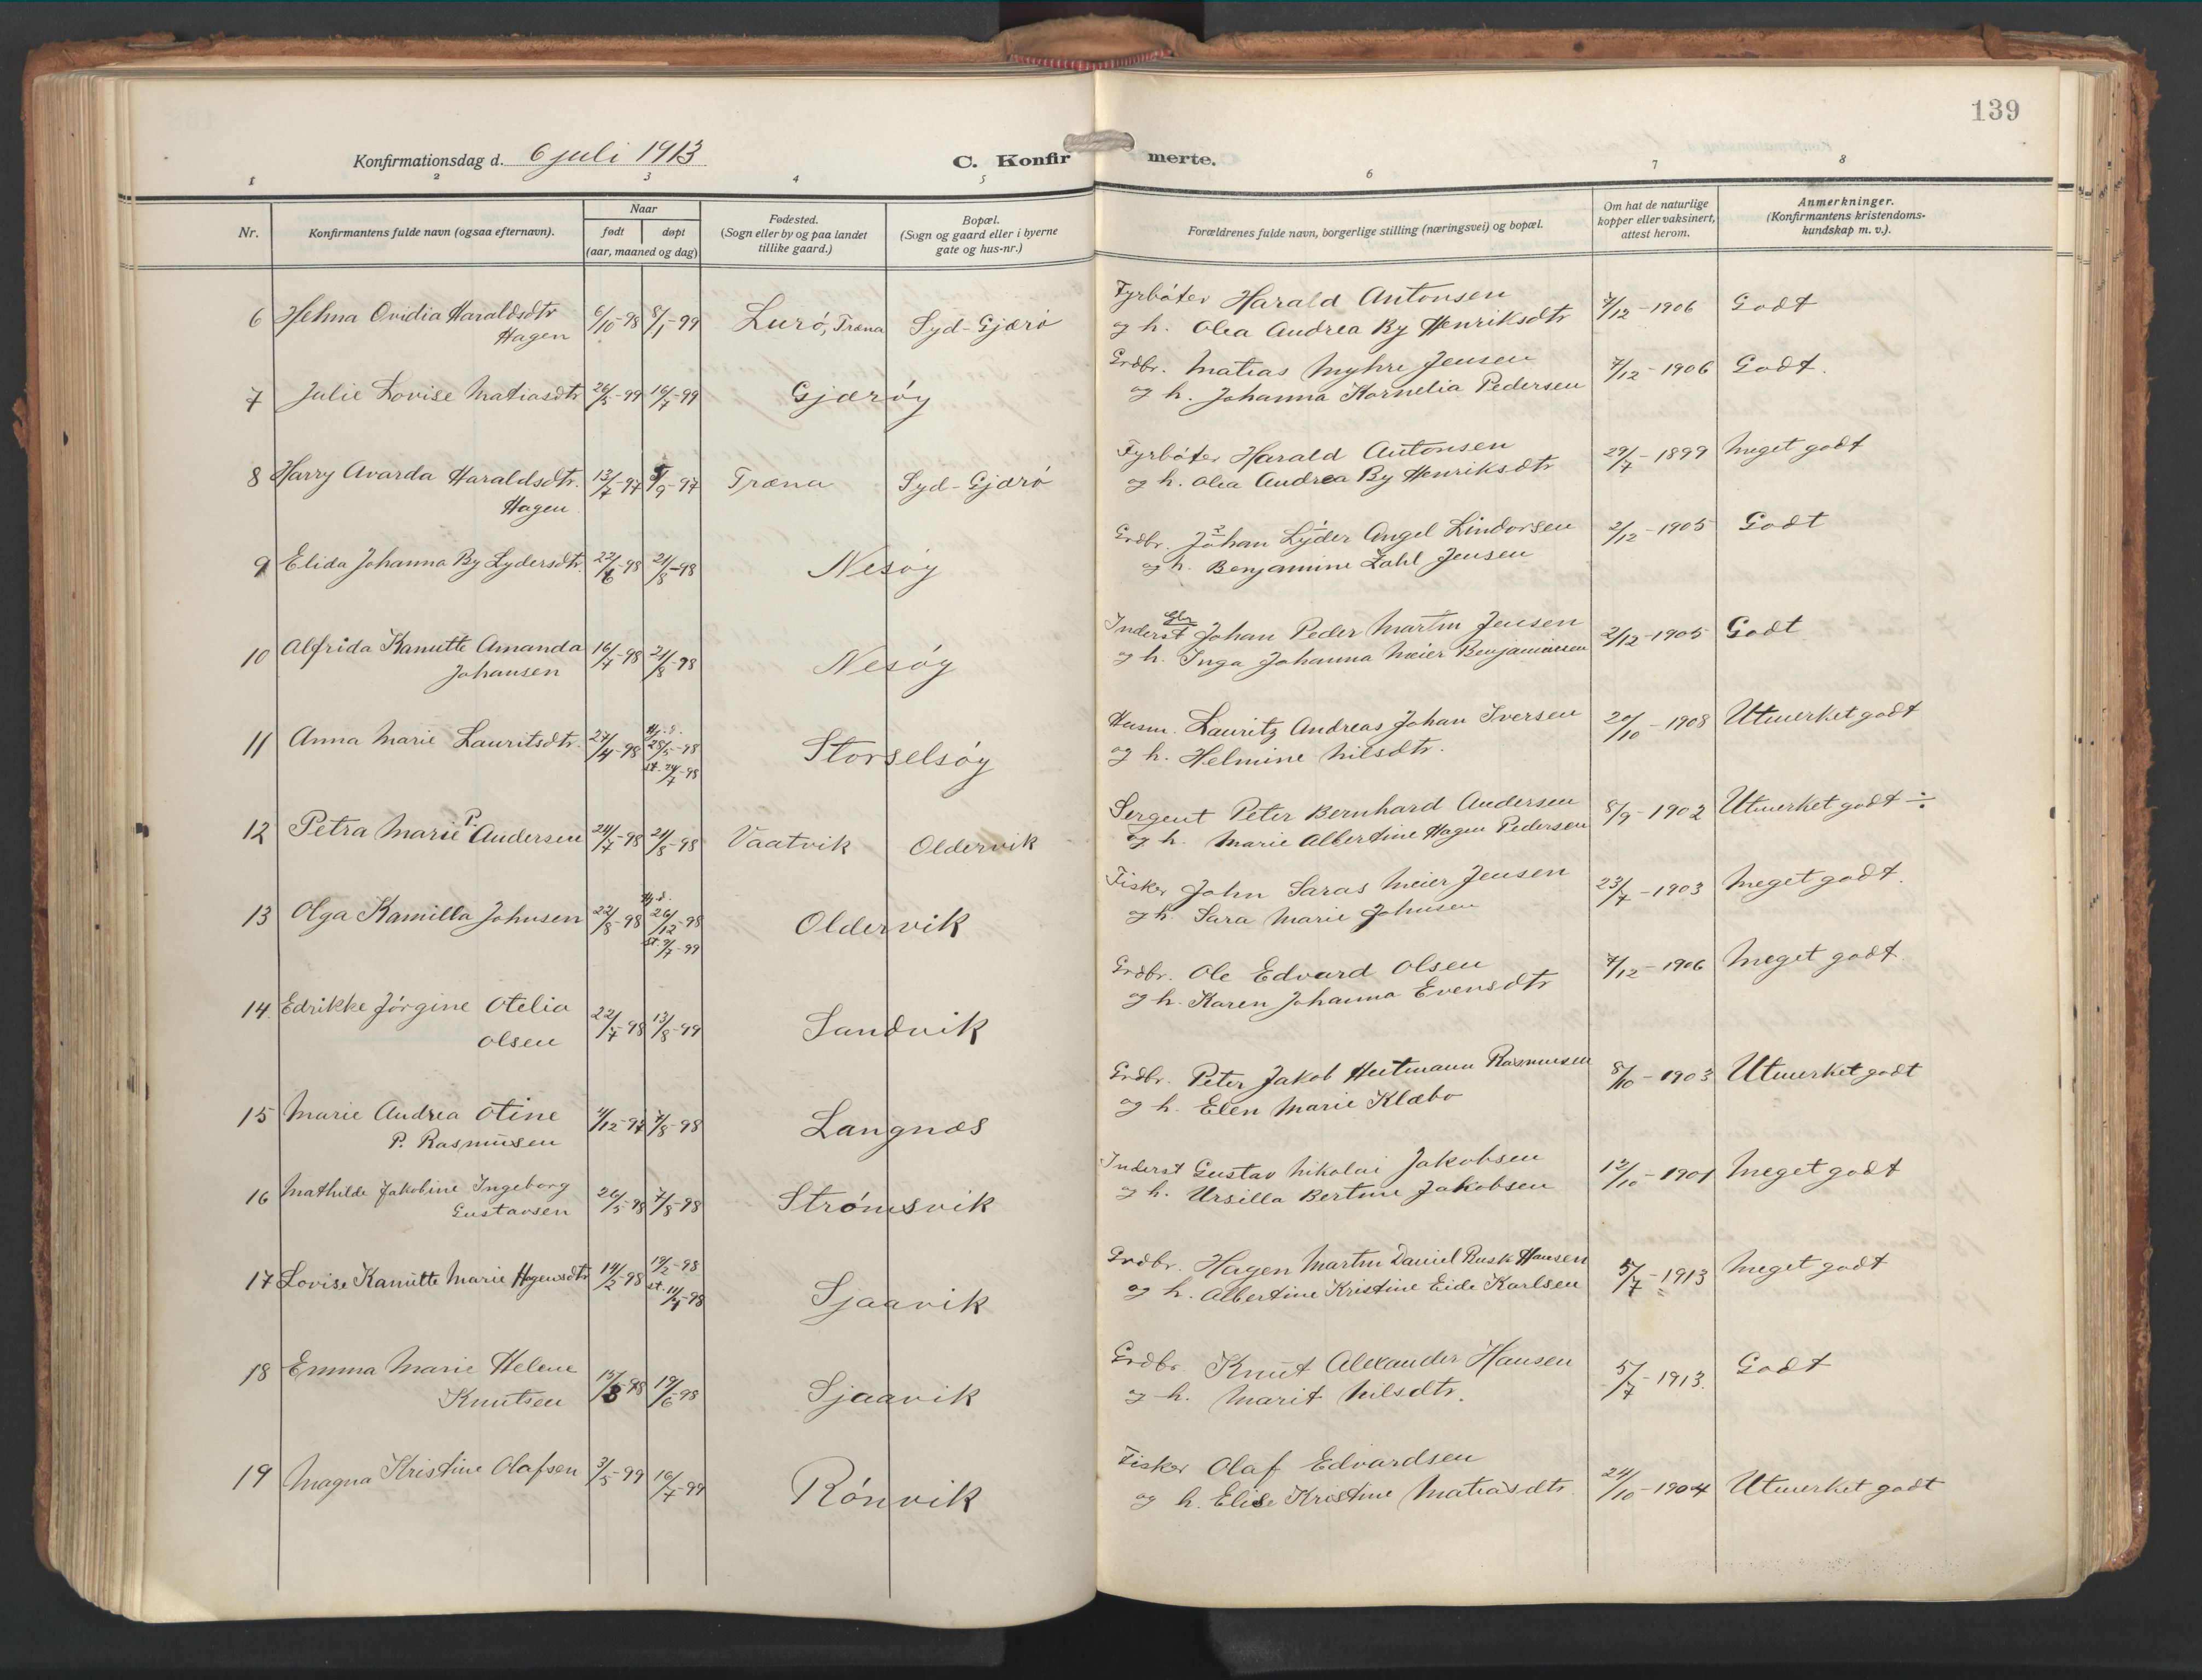 139
Konfirmationsdag d. 6 juli 1913
C. Konfirmerte.
1 2 3 4 5 6 7 8
Nr.
Konfirmantens fulde navn (ogsaa efternavn).
Naar
født døpt
(aar, maaned og dag)
Fødested.
(Sogn eller by og paa landet
tillike gaard.)
Bopæl.
(Sogn og gaard eller i byerne
gate og hus-nr.)
Forældrenes fulde navn, borgerlige stilling (næringsvei) og bopæl.
Om hat de naturlige
kopper eller vaksinert,
attest herom.
Anmerkninger.
(Konfirmantens kristendoms-
kundskap m. v.).
6 Helma Ovidia Haraldsdtr 6/10-98 8/1-99 Lurö, Træna Syd-Gjærö Fyrbøter Harald Antonsen 7/12-1906 Godt
Hagen og h. Olea Andrea By Henriksdtr
7 Julie Lovise Matiasdtr 26/5-99 16/7-99 Gjærøy Grdbr. Matias Myhre Jensen 7/12-1906 Godt.
og h. Johanna Kornelia Pedersen
8 Harry Avarda Haraldsdtr. 13/7-97 5/9-97 Træna Syd-Gjærö Fyrbøter Harald Antonsen 29/7-1899 Meget godt
Hagen og h. Olea Andrea By Henriksdtr
9 Elida Johanna By Lydersdtr. 22/6-98 21/8-98 Nesøy Grdbr. Johan Lyder Angel Lindorsen 2/12-1905 Godt
og h. Benjamine Zahl Jensen
10 Alfrida Kanutte Amanda 16/7-98 21/8-98 Nesøy Inderst Johan Peder Martin Jensen 2/12-1905 Godt
Johansen og h. Inga Johanna Meier Benjaminsen
11 Anna Marie Lauritsdtr. 27/4-98 28/5-98 Storselsøy Husm. Lauritz Andreas Johan Iversen 20/10-1908 Utmerket godt
st. 24/7-98 og h. Helmine Nilsdtr.
12 Petra Marie P. Andersen 24/7-98 21/8-98 Vaatvik Oldervik Sergent Peter Bernhard Andersen 8/9-1902 Utmerket godt ÷
og h. Marie Albertine Hagen Pedersen
13 Olga Kamilla Johnsen 22/8-98 26/12-98 Oldervik Fisker John Saras Meier Jensen 23/7-1903 Meget godt.
st. 9/7-99 og h. Sara Marie Johnsen
14 Edrikke Jørgine Otelia 22/7-98 13/8-99 Sandvik Grdbr. Ole Edvard Olsen 7/12-1906 Meget godt.
Olsen og h. Karen Johanna Evensdtr
15 Marie Andrea Otine /12-97 7/8-98 Langnæs Grdbr. Peter Jakob Heitmann Rasmussen 8/10-1903 Utmerket godt
P. Rasmussen og h. Elen Marie Klæbo
16 Mathilde Jakobine Ingeborg 26/5-98 7/8-98 Strømsvik Inderst Gustav Nikolai Jakobsen 12/10-1901 Meget godt
Gustavsen og h. Ursilla Bertine Jakobsen
17 Lovise Kanutte Marie Hagensdtr 14/2-98 19/2-98 Sjaavik Grdbr. Hagen Martin Daniel Rusk Hansen 5/7-1913 Meget godt
st. 11/4-98 og h. Albertine Kristine Eide Karlsen
18 Emma Marie Helene 15/3-98 19/6-98 Sjaavik Grdbr. Knut Alexander Hansen 5/7-1913. Godt
Knutsen og h. Marit Nilsdtr.
19 Magna Kristine Olafsen 3/5-99 16/7-99 Rönvik Fisker Olaf Edvardsen 24/10-1904 Utmerket godt
og h. Elise Kristine Matiasdtr.